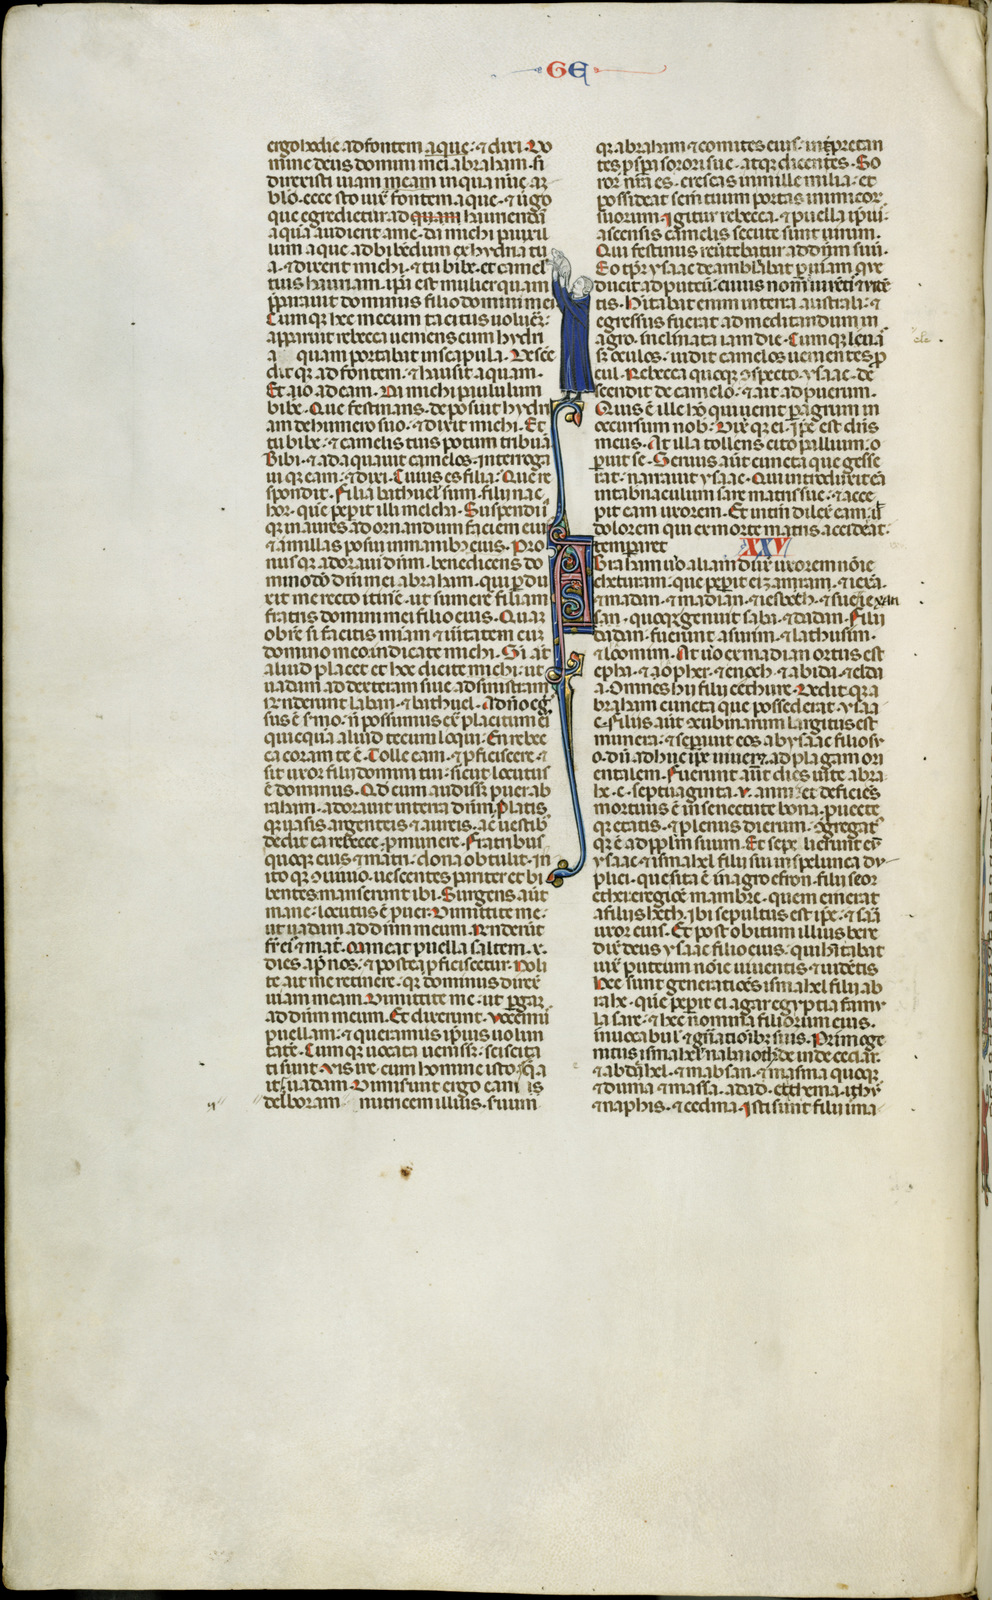 GE
ergo hodie ad fontem aque: & dixi. Do
mine deus domini mei abraham. si
direxisti uiam meam in qua nunc am
bulo. ecce sto iuxta fontem aque. & uirgo
que egredietur ad quam hauriendā
aquā audierit a me. da michi pauxil
lum aque ad bibēdum ex hydria tu
a. & dixerit michi. & tu bibe. et camelˀ
tuis hauriam. ipā est mulier quam
p̄parauit dominus filio domini mei
Cumqꝫ hec mecum tacitus uoluerē:
apparuit rebecca ueniens cum hydri
a quam portabat in scapula. Desce
ditqꝫ ad fontem. & hausit aquam.
Et aio ad eam. Da michi paululum
bibe. Que festinans. deposuit hydri
am de humero suo. & dixit michi. Et
tu bibe. & camelis tuis potum tribuā
Bibi. & adaquauit camelos. interroga
uiqꝫ eam. & dixi. Cuius es filia. Que re
spondit. Filia bathuel sum. filii nac
hor. que peperit illi melcha. Suspendi
qꝫ inaures ad ornandum faciem eius
& armillas posui in manibꝫ eius. Pro
nusqꝫ adoraui dnm. benedicens do
mino dn̄i mei abraham. qui p̄du
xit me recto itinē. ut sumerē filiam
fratris domini mei filio eius. Quam
obrē si facitis mīam & ūitatem cum
domino meo indicate michi. Si aūt
aliud placet et hec dicite michi. ut
uadam ad dexteram siue ad sinistram
Rn̄derunt laban. & bathuel. A dn̄o eg̃
sus ē sermo. n̄ possumus extra placitum ei
quicquam aliud tecum loqui. En rebec
ca coram te ē. Tolle eam. & p̄ficiscere. &
sit uxor filii domini tui. sicut locutus
ē dominus. Qd cum audisset puer ab
raham. adorauit in terra dnm. Platis
qꝫ uasis argenteis & aureis. ac uestibꝫ
dedit ea rebecce. p munere. Fratribus
quoqꝫ eius & matri. dona obtulit. in
ito qꝫ 9uiuio. uescentes pariter et bi
bentes. manserunt ibi. Surgens aūt
mane. locutus ē puer. Dimittite me.
ut uadam ad dominum meum. Rn̄derūt
fr̄es eius & mat̄. Maneat puella saltem. x.
dies apd nos. & postea p̄ficiscetur. Noli
te ait me retinere. qꝫ dominus direxit
uiam meam. Dimittite me. ut pergam
ad dnm meum. Et dixerunt. Vocemus
puellam. & queramus ipsius uolun
tatē. Cumqꝫ uocata uenisset. sciscita
ti sunt. Vis ire cum homine isto. Que a
it. uadam. Dimiserunt ergo eam is
delboram nutricem illius. suum
qꝫ abraham & comites eius. inp̄cantes
tes p̄spera sorori sue. atqꝫ dicentes. So
ror nr̄a es. crescas in mille milia. et
possideat semen tuum portas inimicor
suorum. Igitur rebecca. & puelle ipius.
ascensis camelis secute sunt uirum.
Qui festinus reūtebatur ad dnm suū.
Eo tpr̄ ysaac deambulabat p uiam que
ducit ad puteū. cuius nom̄ uiuenti & uide
tis. Habitabat enim in terra australi. &
egressus fuerat ad meditandum in
agro. inclinata iam die. Cumqꝫ leua
sset oculos. uidit camelos uenientes p
cul. Rebecca quoqꝫ 9specto ysaac. de
scendit de camelo. & ait ad puerum.
Quis ē ille homo qui uenit p agrum in
occursum nob. Dixitqꝫ ei. Ipē est dn̄s
meus. At illa tollens cito pallium. o
peruit se. Seruus aūt cuncta que gesse
rat. narrauit ysaac. Qui introduxit eā
in tabnaculum sare matris sue. & acce
pit eam uxorem. Et intm̄ dilexit eam. ut
dolorem qui ex morte matris acciderat.
temperaret XXV
Abraham uō aliam duxit uxorem noīe
cethuram. que peperit ei zamram. & iexa.
& madan. & madian. & iesboch. & sueie
san. quoqꝫ genuit saba. & dadan. Filii
dadan. fuerunt assurim. & lathusim.
& loomim. At uō ex madian ortus est
epha. & aopher. & enoch. & abida. & elda
a. Omnes hii filii cethure. Deditqꝫ a
braham cuncta que possederat. ysaa
c. Filiis aūt 9cubinarum largitus est
munera. & sepauit eos ab ysaac filio su
o. dū adhuc ipe uiueret. ad plagam ori
entalem. Fuerunt aūt dies uite abra
he. c. septuaginta. v. anni. et deficiēs
mortuus ē in senectute bona. puecte
qꝫ etatis. & plenus dierum. 9gregatˀ
qꝫ ē ad pplm suum. Et sepelierunt eū
ysaac & ismahel filii sui in spelunca du
plici. que sita ē in agro efron. filii seor
ethei e regione mambre. quem emerat
a filiis heth. ibi sepultus est ipe. & sara
uxor eius. Et post obitum illius bene
dixit deus ysaac filio eius. qui habitabat
iuxta puteum noīe uiuentis & uidētis
Hee sunt generatiōes ismahel filii ab
rahe. que peperit ei agar egyptia famu
la sare. & hec nomina filiorum eius.
in uocabul. & gn̄atioibꝫ suis. Primoge
nitus ismahel nabaioth. deinde cedar.
& abdyhel. & mabsan. & masma quoqꝫ
& duma & massa. adad. & thema. ithur
& naphis. & cedma. Isti sunt filii ima